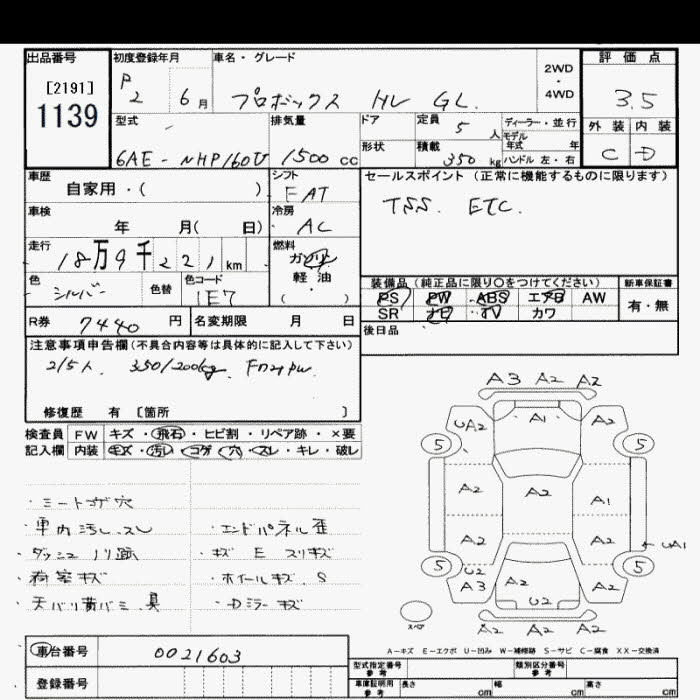 出品番号 初度登録年月 車名・グレード 2WD・4WD 評価点
[2191]
1139
R2 6月 プロボックス HV GL. 3.5
型式 排気量 ドア 定員 5人 ディーラー・並行 外装 内装
モデル年式 年
6AE-NHP160V 1500cc 形状 積載 350kg ハンドル 左・右 C D
車歴 シフト セールスポイント (正常に機能するものに限ります)
自家用・( ) FAT TSS. ETC.
車検 冷房
年 月( 日) AC
走行 燃料
18万9千221km ガソリン・軽油
( )
色 シルバー 色替 色コード 1E7
装備品(純正品に限り〇をつけてください) 新車保証書
PS PW ABS エアB AW 有・無
SR ナビ TV カワ
R券 7440円 名変期限 月 日 後日品
注意事項申告欄(不具合内容等は具体的に記入して下さい)
2/5人. 350/200kg. Fのみpw.
修復歴 有 [箇所 ]
検査員記入欄 FW キズ・飛石・ヒビ割・リペア跡・×要
内装 キズ・汚レ・コゲ・穴・スレ・キレ・破レ
A3 A2 A2
UA2 A1 A2
5 5
A2 A2 A1
A2 A2 UA1
5 5
U2 A3 A2 U2 A2
A2 A2 A2
スペア
・シートコゲ穴
・車内汚レ.スレ ・エンドパネル歪
・ダッシュノリ跡 ・キズ E スリキズ
・荷室キズ ・ホイールキズ. S
・天バリ黄バミ.臭 ・Dミラーキズ
A-キズ E-エクボ U-凹み W-補修跡 S-サビ C-腐食 XX-交換済
車台番号 0021603
登録番号
型式指定番号参考 類別区分番号参考
車庫証明用参考 長さ cm 幅 cm 高さ cm